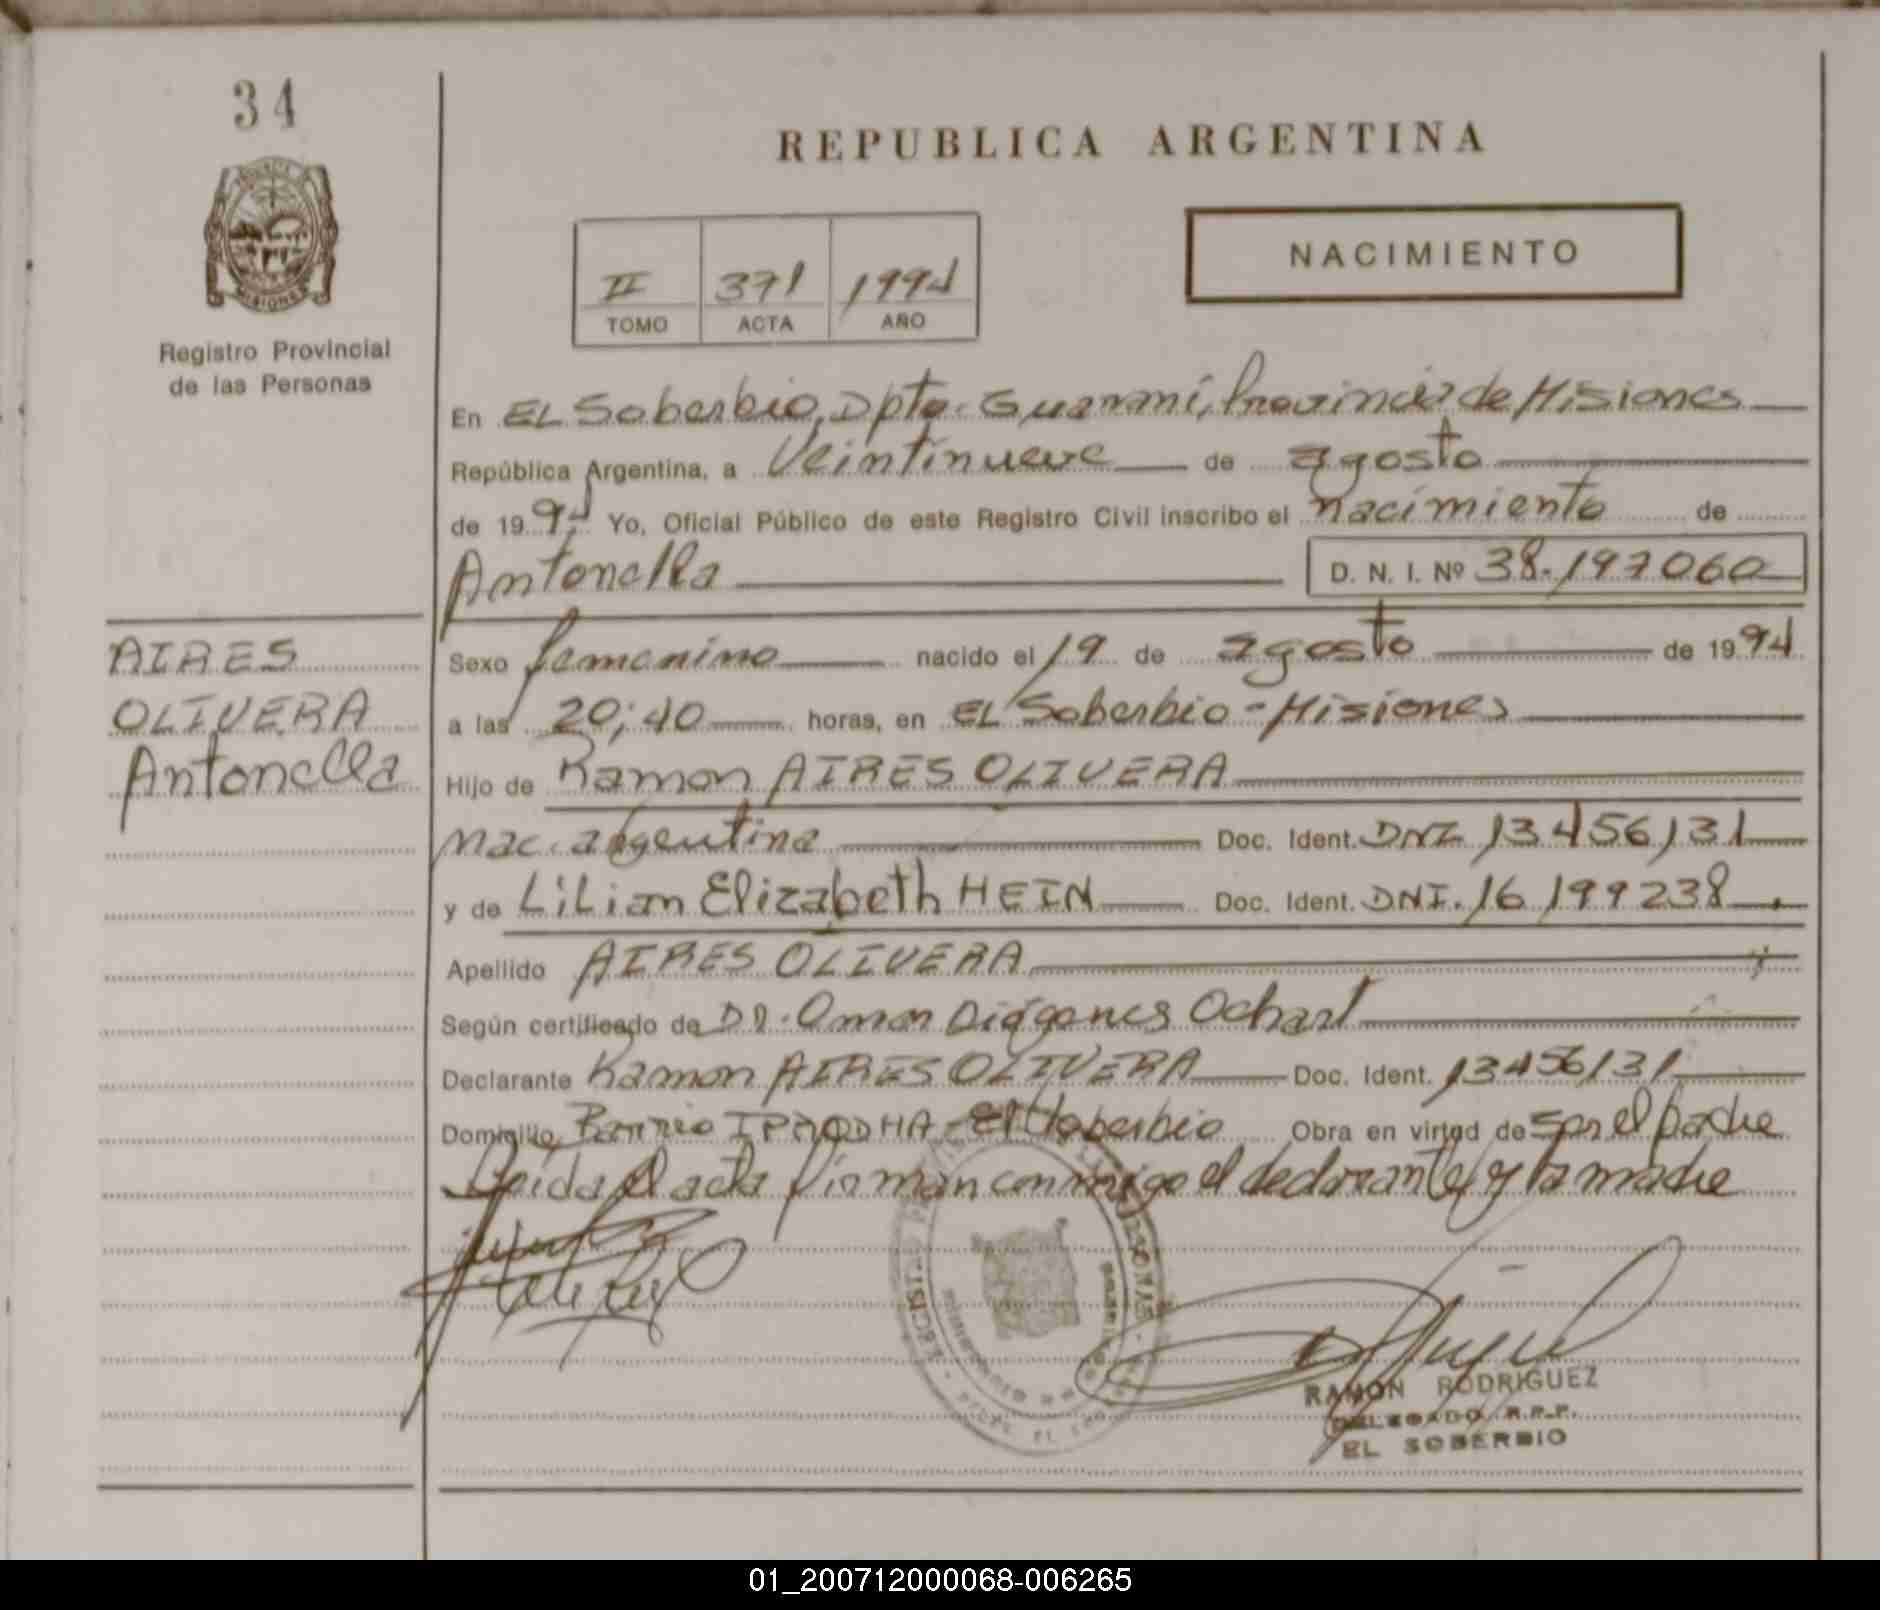 34
REPUBLICA ARGENTINA
NACIMIENTO
II 371 1994
TOMO ACTA AÑO
MISIONES
Registro Provincial
de las Personas
En EL Soberbio, Dpto. Guaraní, Provincia de Misiones
República Argentina, a Veintinueve de agosto
de 1994 Yo, Oficial Público de este Registro Civil inscribo el nacimiento de
Antonella D. N. I. Nº 38.197060
AIRES
OLIVERA
Antonella
Sexo femenino nacido el 19 de agosto de 1994
a las 20;40 horas, en EL Soberbio - Misiones
Hijo de Ramon AIRES OLIVERA
nac. argentina Doc. Ident. DNI 13456131
y de LiLian Elizabeth HEIN Doc. Ident. DNI. 16199238
Apellido AIRES OLIVERA
Según certificado de Dr. Omar Diógenes Ochart
Declarante Ramon AIRES OLIVERA Doc. Ident. 13456131
Domicilio Barrio IPRODHA - El Soberbio Obra en virtud de ser el padre
Leida el acta firman conmigo el declarante y la madre
RAMON RODRIGUEZ
DELEGADO R.P.P.
EL SOBERBIO
01_200712000068-006265